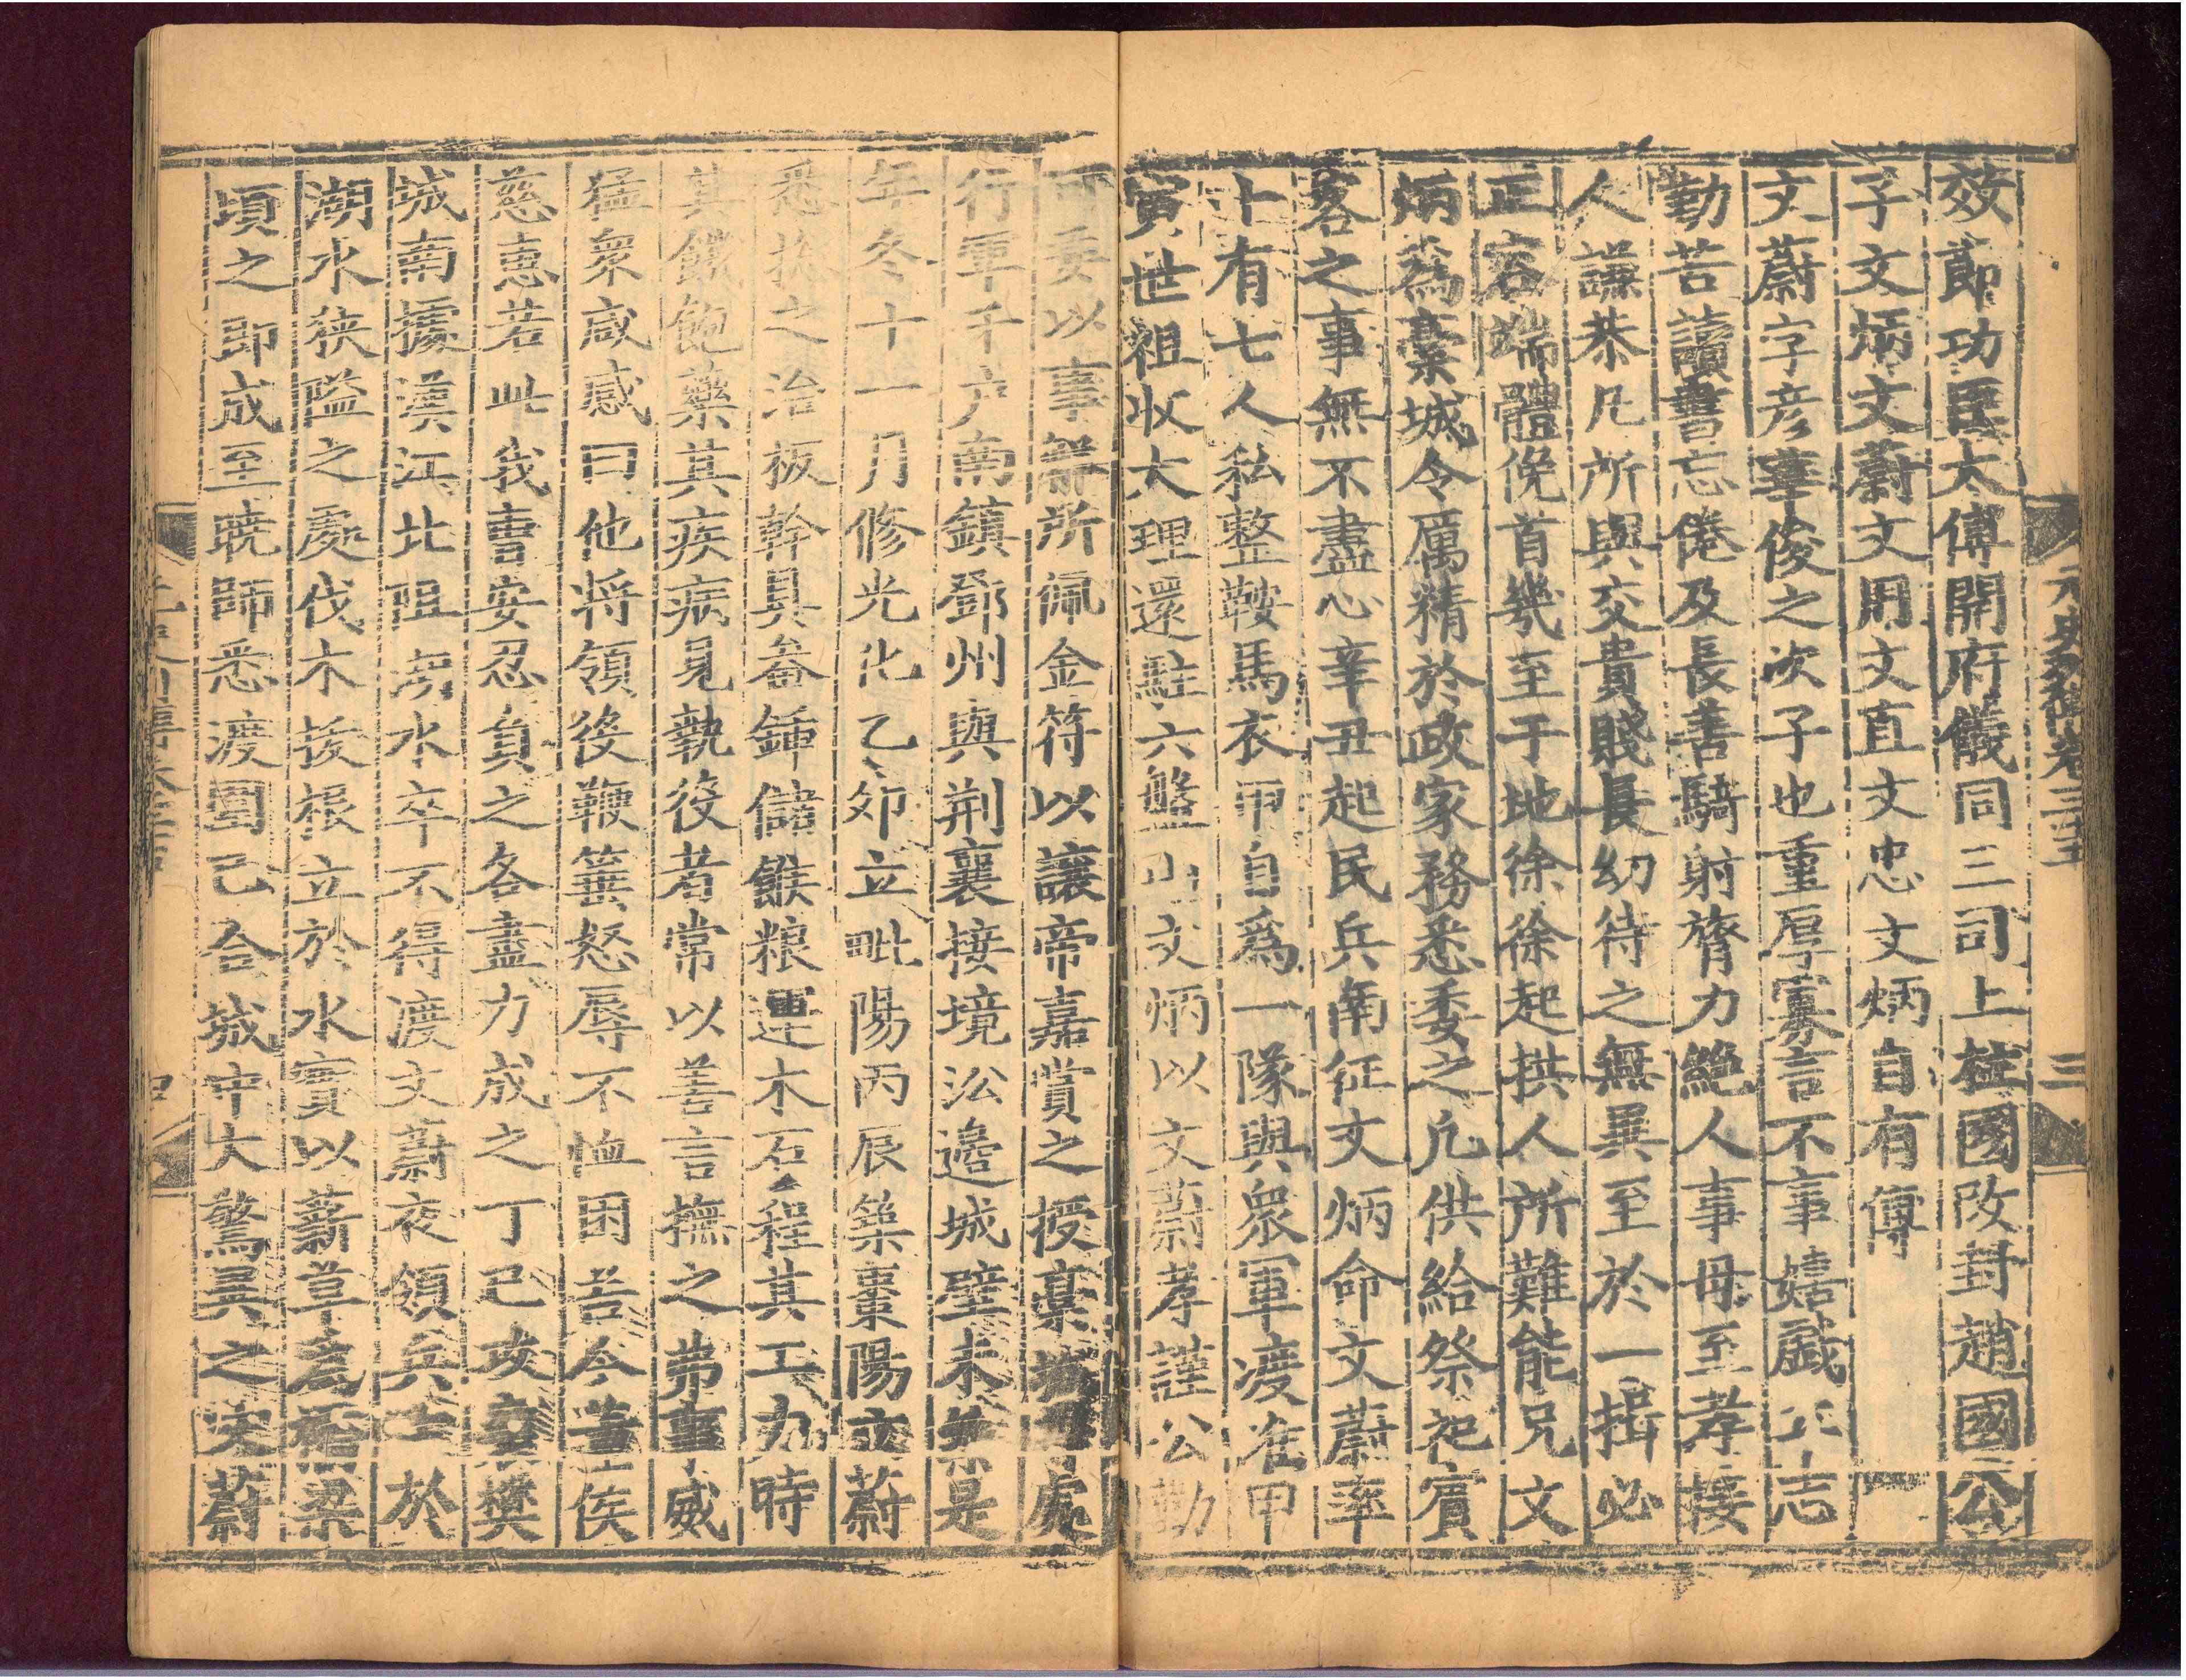 元史列傳卷三十五
三
效節功臣太傅開府儀同三司上柱國改封趙國公
子文炳文蔚文用文直文忠文炳自有傳
文蔚字彥華俊之次子也重厚寡言不事嬉戲以志
勤苦讀書忘倦及長善騎射膂力絕人事母至孝接
人謙恭凡所與交貴賤長幼待之無異至於一揖必
正容端體俛首幾至于地徐徐起拱人所難能兄文
炳為藁城令厲精於政家務悉委之凡供給祭祀賓
客之事無不盡心辛丑起民兵南征文炳命文蔚率
十有七人私整鞍馬衣甲自爲一隊與眾軍渡淮甲
寅世祖收大理還駐六盤山文炳以文蔚孝謹公勤
可委以事解所佩金符以讓帝嘉賞之授藁城等處
行軍千户南鎮鄧州與荆襄接境沿邊城壁未築是
年冬十一月修光化乙卯立毗陽丙辰築棗陽文蔚
悉揔之治板幹具畚鍤儲餱粮運木石程其工力時
其饑飽藥其疾病見執役者常以善言撫之弗事威
猛衆咸感曰他将領役鞭箠怒辱不恤困苦今董侯
慈惠若此我曹安忍負之各盡力成之丁巳攻襄樊
城南據漢江北阻湖水卒不得渡文蔚夜領兵士於
湖水狹隘之處伐木拔根立於水實以薪草爲橋梁
頃之即成至曉師悉渡圍已合城中大驚異之文蔚
四